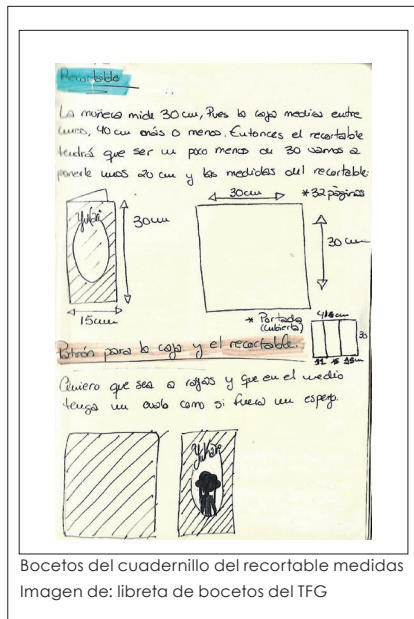 Recortable
La muñeca mide 30 cm, Pues la caja medira entre
unos, 40 cm más o menos. Entonces el recortable
tendrá que ser un poco menos de 30 vamos a
ponerle unos 20 cm y las medidas del recortable:
30cm *32 páginas
Yukari
30cm
30 cm
15cm
* Portada
(cubierta)
30
Patrón para la caja y el recortable.
Quiero que sea a rayas y que en el medio
tenga un ovalo como si fuera un espejo.
Yukari
Bocetos del cuadernillo del recortable medidas
Imagen de: libreta de bocetos del TFG